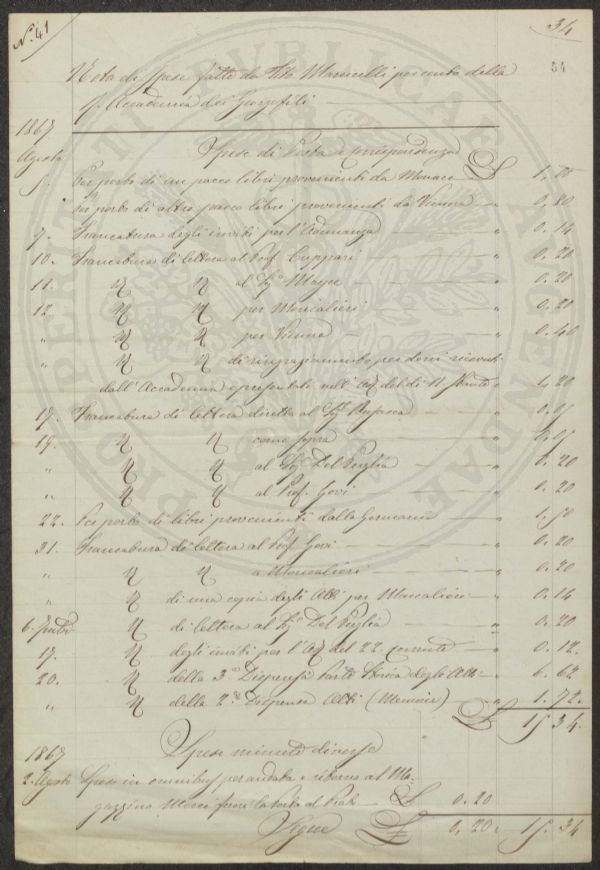 N.° 41
34
54
Nota di Spese fatte da Tito Marucelli per conto della
R. Accademia dei Georgofili
1867
Spese di Posta e Corrispondenza
Agosto
5. Per porto di un pacco libri provenienti da Monaco £
Per porto di altro pacco libri provenienti da Vienna " 0,80
9. Francatura degli inviti per l'Adunanza " 0.14
10. Francatura di lettera al Prof. Cuppari " 0.20
11. " " al Sig.e " 0.20
12. " " per Moncalieri " 0.20
" " " per Vienna " 0.40
" " " di ringraziamento per doni ricevuti
dall'Accademia e presentati nell' del dì 11 " 1.20
17. Francatura di lettera diretta al
19. " " come sopra
" " " al Sig.e Del Puglia " 0.20
" " " al Prof. Govi " 0.20
22. Per porto di libri provenienti dalla Germania "
31. Francatura di lettera al Prof. Govi " 0.20
" " " a Moncalieri " 0.20
" " di una copia degli Atti per Moncalieri " 0.14
6. " di lettera al Sig.e Del Puglia " 0.20
17. " degli inviti per l' del 22 corrente " 0.12.
20. " della 3.a Dispensa Parte Storica degli Atti " 6.62
" " della 2.a Dispensa Atti (Memorie) " 1.72.
£ 15 34.
1867
Spese minute diverse
2. Agosto Spese in omnibus per andata e ritorno al Ma-
gazzino fuori la Porta al Prato £ 0.20
Segue £ 0.20 " 15. 34
PROSPERITATI PUBLICAE AUGENDAE